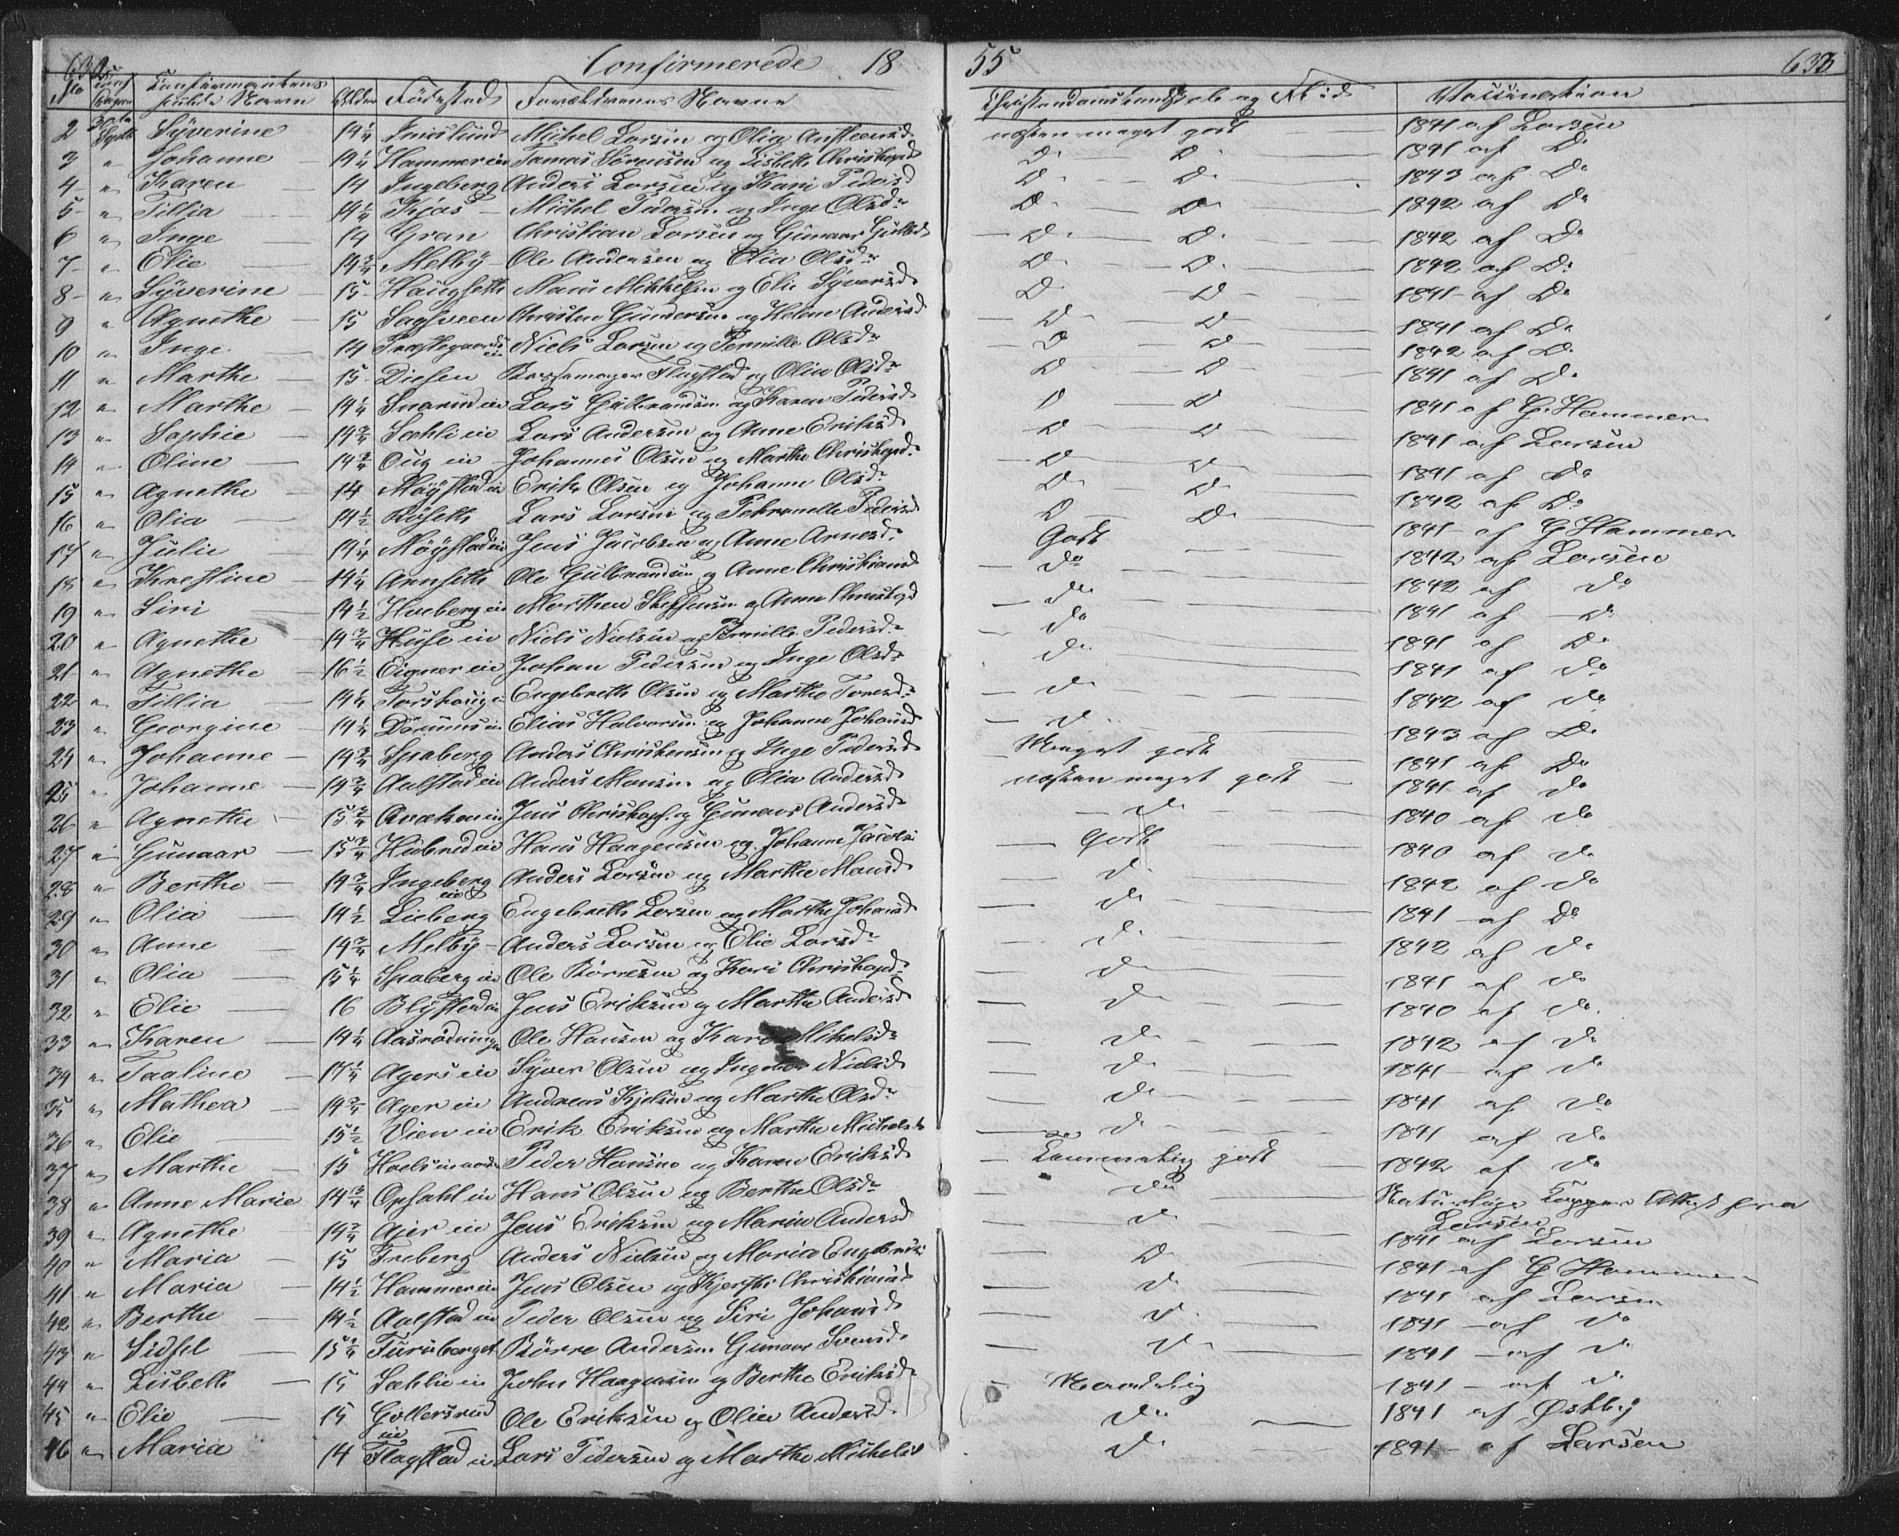 632 Confirmerede 18
55 633
No Confirmantens fulde Navn Alder Fødested Forældrenes Navne
Christendomskundskab og Flid Vaccination
2 Syverine 14 1/4 Michel Larsen og Olia
næsten meget godt 1841 af Larsen
3 " Johanne 14 1/4 Hammer ein Tomas Sørensen og Lisbeth Christophd
Do Do 1841 af Do
4 " Karen 14 Ingeberg Anders Larsen og Kari Pedersd
Do Do 1843 af Do
5 " Tillia 14 1/4 Kjos Michel Pedersen og Inge Olsdr
Do Do 1842 af Do
6 " Inge 14 Gran Christian Larsen og Gunaar
Do Do 1842 af Do
7 " Elie 14 3/4 Melby Ole Andersen og Olia Olsdr
Do Do 1842 af Do
8 " Syverine 15 Haugseth Mans Mikkelsen og Elie Syversd
Do Do 1841 af Do
9 " Agnethe 15 Sagsveen Christen Gundersen og Helene Andersd
Do Do 1841 af Do
10 " Inge 14 Niels Larsen og Pernille Olsdr
Do Do 1842 af Do
11 " Marthe 15 Diesen Flagstad og Olia Olsdr
Do Do 1841 af Do
12 " Marthe 14 1/4 Lars Gulbrandsen og Karen Pedersd
Do Do 1841 af G. Hammer
13 " Sophie 14 3/4 Sæhli ein Lars Andersen og Anne Eriksd
Do Do 1841 af Larsen
14 " Oline 14 3/4 Johannes Olsen og Marthe Christophd
Do Do 1841 af Do
15 " Agnethe 14 Møystad ein Erik Olsen og Johanne Olsdr
Do Do 1842 af Do
16 " Olia 14 1/2 Røseth Lars Larsen og Pehronelle Pedersd
Do Do 1841 af G Hammer
17 " Julie 14 1/4 Møystad ein Jens Jacobsen og Anne Arnesd
Godt 1842 af Larsen
18 " Krestine 14 1/4 Arnseth Ole Gulbrandsen og Anne Christiansd
do 1842 af do
19 " Siri 14 1/2 Morthen Steffensen og Anne Christophd
do 1841 af Do
20 " Agnethe 14 3/4 Niels Nielsen og Pernille Pedersd
do 1841 af Do
21 " Agnethe 16 1/2 Eigner ein Johan Pedersen og Inge Olsdr
do 1841 af do
22 " Tillia 14 1/4 Engebreth Olsen og Marthe Tomesd
do 1842 af do
23 " Georgine 14 1/4 Elias Halvorsen og Johanne Johansd
do 1843 af Do
24 " Johanne 14 3/4 Spaberg Anders Christensen og Inge Pedersd
Meget godt 1841 af Do
25 " Johanne 14 3/4 Aalstad ein Anders Mansen og Olia Andersd
næsten meget godt 1841 af do
26 " Agnethe 15 3/4 Jens Christoph. og Gunaar Andersd
do 1840 af do
27 " Gunaar 15 3/4 Hans Haagensen og Johanne
Godt 1840 af do
28 " Berthe 14 3/4 Ingeberg ein Anders Larsen og Marthe Mansd
do 1842 af do
29 " Olia 14 1/2 Lieberg Engebreth Larsen og Marthe Johansd
do 1841 af Do
30 " Anne 14 3/4 Melby Anders Larsen og Elie Larsdr
do 1842 af do
31 " Olia 15 1/4 Spaberg ein Ole Børresen og Kari Christophd
do 1841 af do
32 " Elie 16 Blystad ein Jens Eriksen og Marthe Andersd
do 1840 af do
33 " Karen 14 1/4 Ole Hansen og Mikelsdr
do 1842 af do
34 " Paaline Agers ein Syver Olsen og Nielsd
do 1841 af do
35 " Mathea 14 3/4 Ager ein Andreas og Marthe Olsdr
do 1841 af do
36 " Elie 15 1/2 Vien ein Erik Eriksen og Marthe Michelsd
do 1841 af do
37 " Marthe 15 Peder Hansen og Karen Eriksd
Temmelig godt 1842 af do
38 " Anne Marie 14 3/4 Opsahl ein Hans Olsen og Berthe Olsdr
do Naturlige Kopper Attest fra Larsen
39 " Agnethe 14 3/4 Ajer ein Jens Eriksen og Maria Andersd
do 1841 af Larsen
40 " Maria 15 Freberg Anders Nielsen og Maria
Do 1841 af G Hammer
41 " Maria 14 1/2 Hammer ein Jens Olsen og Kjersti Christiansd
do 1841 af Larsen
42 " Berthe 14 1/2 Aalstad ein Peder Olsen og Siri Johansd
do 1841 af do
43 " Sidsel 15 1/4 Furuberget Børre Andersen Gunaar Svensd
do 1841 af do
44 " Lisbeth 15 Sæhlie ein John Haagensen og Berthe Eriksd
Maadelig 1841 af do
45 " Elie 15 Gollersrud ein Ole Eriksen og Olia Andersd
do 1841 af Østby
46 " Maria 14 Flagstad ein Lars Pedersen og Marthe Michelsd
do 1841 af Larsen